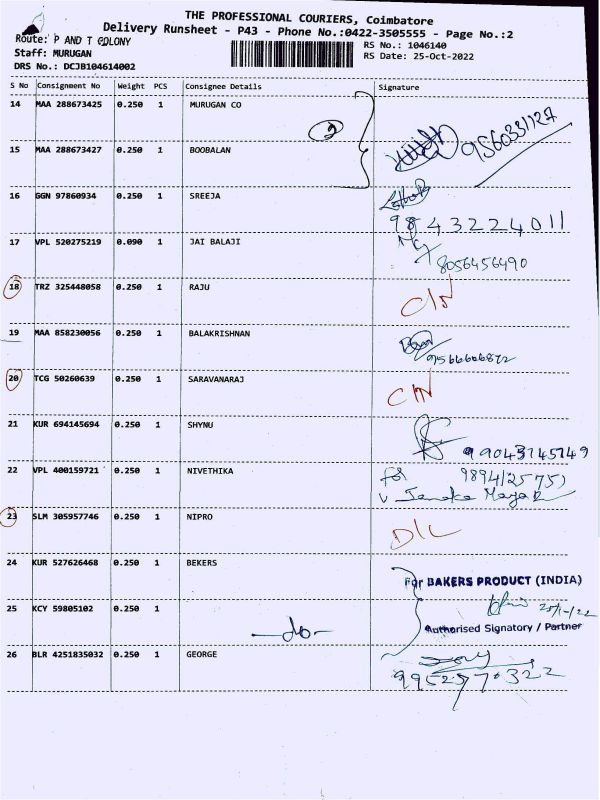 THE PROFESSIONAL COURIERS, Coimbatore
Delivery Runsheet - P43 - Phone No.:0422-3505555 - Page No.:2
Route: P AND T COLONY
RS No.: 1046140
Staff: MURUGAN
RS Date: 25-Oct-2022
DRS No.: DCJB104614002
S No Consignment No Weight PCS Consignee Details Signature
14 MAA 288673425 0.250 1 MURUGAN CO
2
9560331127
15 MAA 288673427 0.250 1 BOOBALAN
16 GGN 97860934 0.250 1 SREEJA
9843224011
17 VPL 520275219 0.090 1 JAI BALAJI
8056456490
18 TRZ 325448058 0.250 1 RAJU
C/N
19 MAA 858230056 0.250 1 BALAKRISHNAN
9566606872
20 TCG 50260639 0.250 1 SARAVANARAJ
C/N
21 KUR 694145694 0.250 1 SHYNU
99043145149
22 VPL 400159721 0.250 1 NIVETHIKA
for
23 SLM 305957746 0.250 1 NIPRO
D/L
24 KUR 527626468 0.250 1 BEKERS
For BAKERS PRODUCT (INDIA)
25 KCY 59805102 0.250 1
-do-
Authorised Signatory / Partner
26 BLR 4251835032 0.250 1 GEORGE